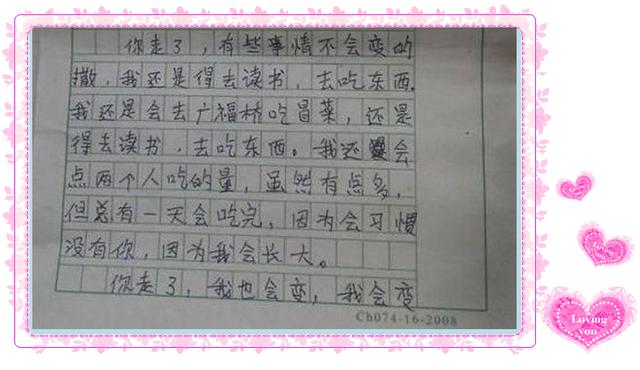 你走了，有些事情不会变的
撒，我还是得去读书，去吃东西.
我还是会去广福桥吃冒菜，还是
得去读书，去吃东西。我还会
点两个人吃的量，虽然有点多，
但总有一天会吃完，因为会习惯
没有你，因为我会长大。
你走了，我也会变，我会变
Ch074-16-2008
Loving
you
Loving
you